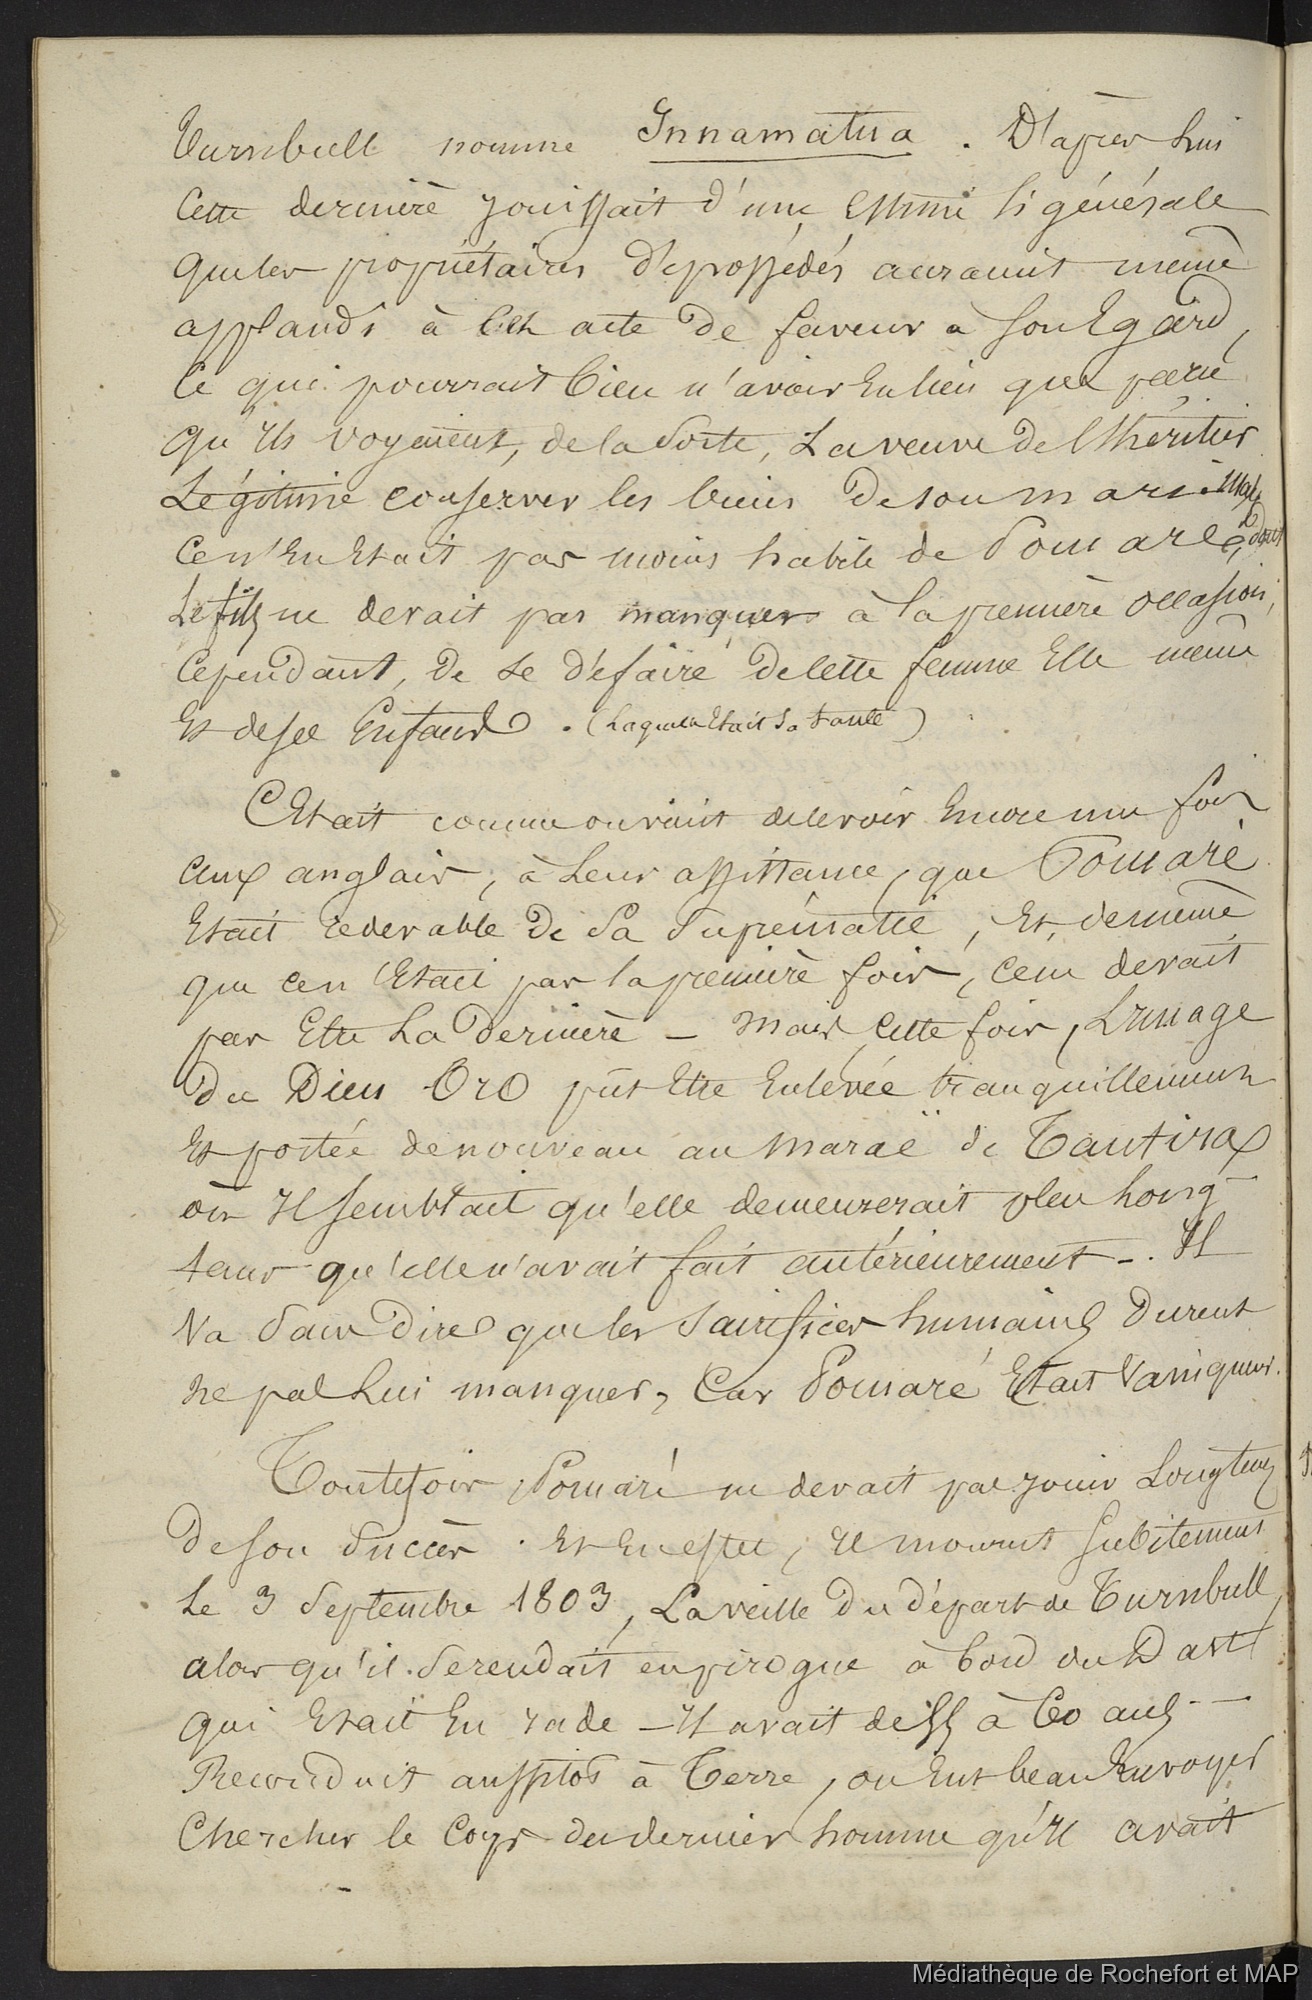 Turnbull nomme Innamatua. D'après lui
cette dernière jouissait d'une estime si générale
que les propriétaires dépossédés auraient même
applaudi à cet acte de faveur à son Egard,
ce qui pourrait bien n'avoir Eu lieu que parce
qu'ils voyaient, de la sorte, la veuve de l'héritier
Légitime conserver les biens de son mari. Mais
ce n'en Etait pas moins habile de Pomaré, dont
Le fils ne devait pas manquer à la première occasion,
cependant, de se défaire de cette femme Elle même
Et de ses Enfants. (Laquelle Etait sa tante)
C'Etait comme on vient de le voir Encore une fois
aux anglais, à Leur assistance, que Pomaré
Etait redevable de sa suprématie, Et de même
que ce n'Etait pas la première fois, ce ne devait
pas Etre La dernière – Mais cette fois, L'image
du Dieu Oro pût Etre Enlevée tranquillement
Et portée de nouveau au Maraë de Tautira
où Il semblait qu'elle demeurerait plus long
tems qu'elle n'avait fait antérieurement –. Il
Va sans dire que les sacrifices humains durent
ne pas Lui manquer, Car Pomaré Etait Vainqueur.
Toutefois, Pomaré ne devait pas jouir Longtems
de son succès. Et En effet, Il mourut subitement
Le 3 Septembre 1803, La veille du départ de Turnbull,
alors qu'il se rendait en pirogue à bord du Dart
qui Etait En rade – Il avait de 55 à 60 ans –
Reconduit aussitôt à Terre, on Eut beau Envoyer
Chercher le corps du dernier homme qu'Il avait
Médiathèque de Rochefort et MAP